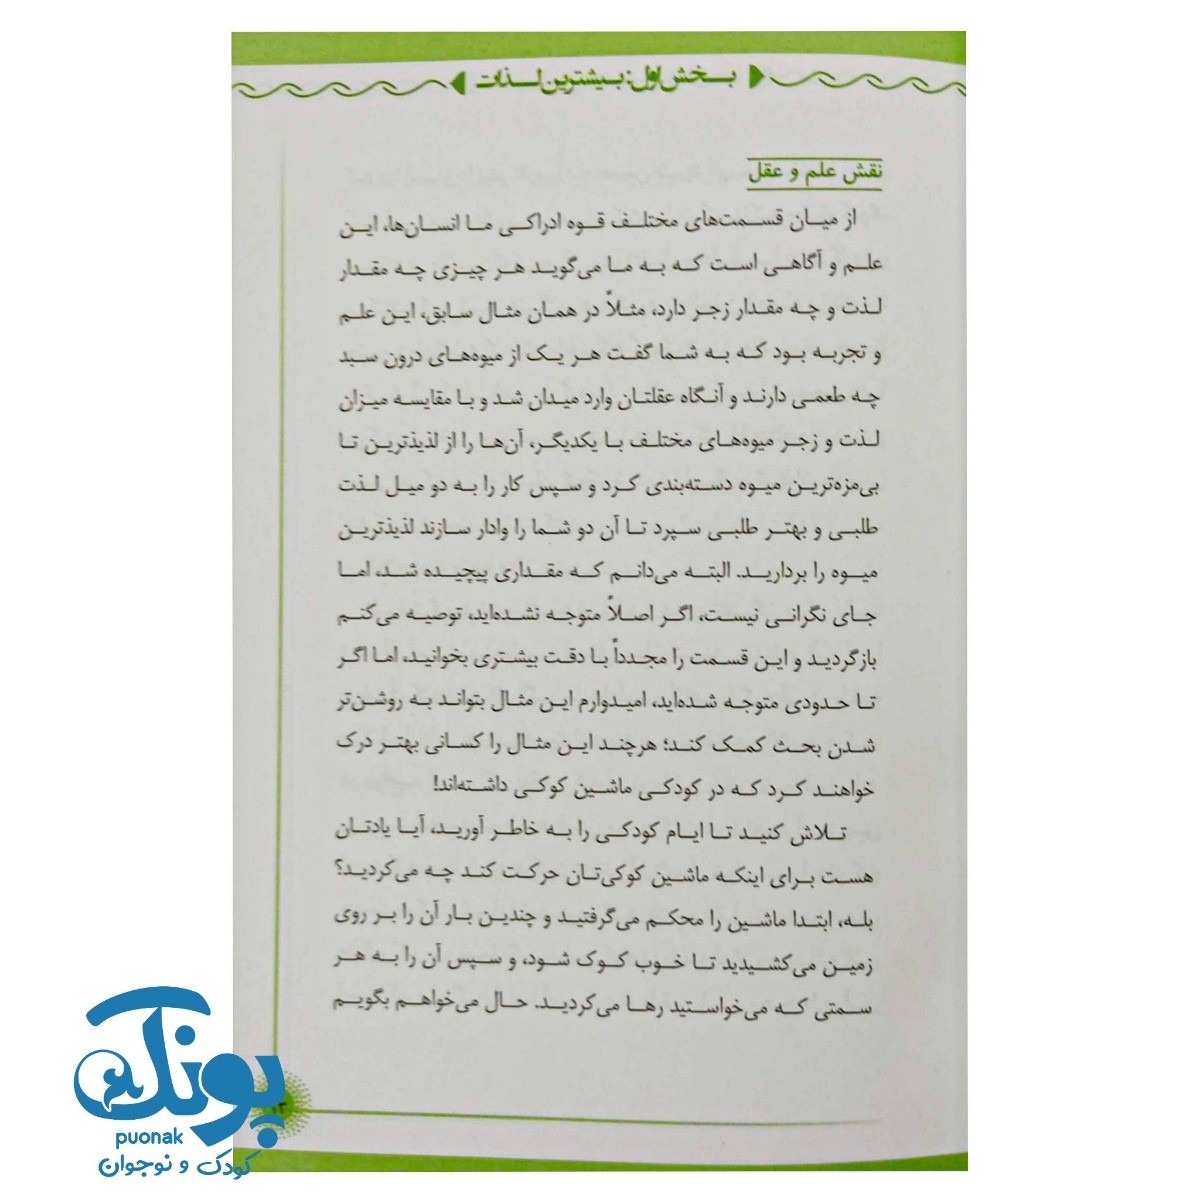 بخش اول: بیشترین لذات
نقش علم و عقل
از میان قسمت‌های مختلف قوه ادراکی ما انسان‌ها، این
علم و آگاهی است که به ما می‌گوید هر چیزی چه مقدار
لذت و چه مقدار زجر دارد، مثلاً در همان مثال سابق، این علم
و تجربه بود که به شما گفت هر یک از میوه‌های درون سبد
چه طعمی دارند و آنگاه عقلتان وارد میدان شد و با مقایسه میزان
لذت و زجر میوه‌های مختلف با یکدیگر، آن‌ها را از لذیذترین تا
بی‌مزه‌ترین میوه دسته‌بندی کرد و سپس کار را به دو میل لذت
طلبی و بهتر طلبی سپرد تا آن دو شما را وادار سازند لذیذترین
میوه را بردارید. البته می‌دانم که مقداری پیچیده شد، اما
جای نگرانی نیست، اگر اصلاً متوجه نشده‌اید، توصیه می‌کنم
بازگردید و این قسمت را مجدداً با دقت بیشتری بخوانید، اما اگر
تا حدودی متوجه شده‌اید، امیدوارم این مثال بتواند به روشن‌تر
شدن بحث کمک کند؛ هرچند این مثال را کسانی بهتر درک
خواهند کرد که در کودکی ماشین کوکی داشته‌اند!
تلاش کنید تا ایام کودکی را به خاطر آورید، آیا یادتان
هست برای اینکه ماشین کوکی‌تان حرکت کند چه می‌کردید؟
بله، ابتدا ماشین را محکم می‌گرفتید و چندین بار آن را بر روی
زمین می‌کشیدید تا خوب کوک شود، و سپس آن را به هر
سمتی که می‌خواستید رها می‌کردید. حال می‌خواهم بگویم
پونک
puonak
کودک و نوجوان